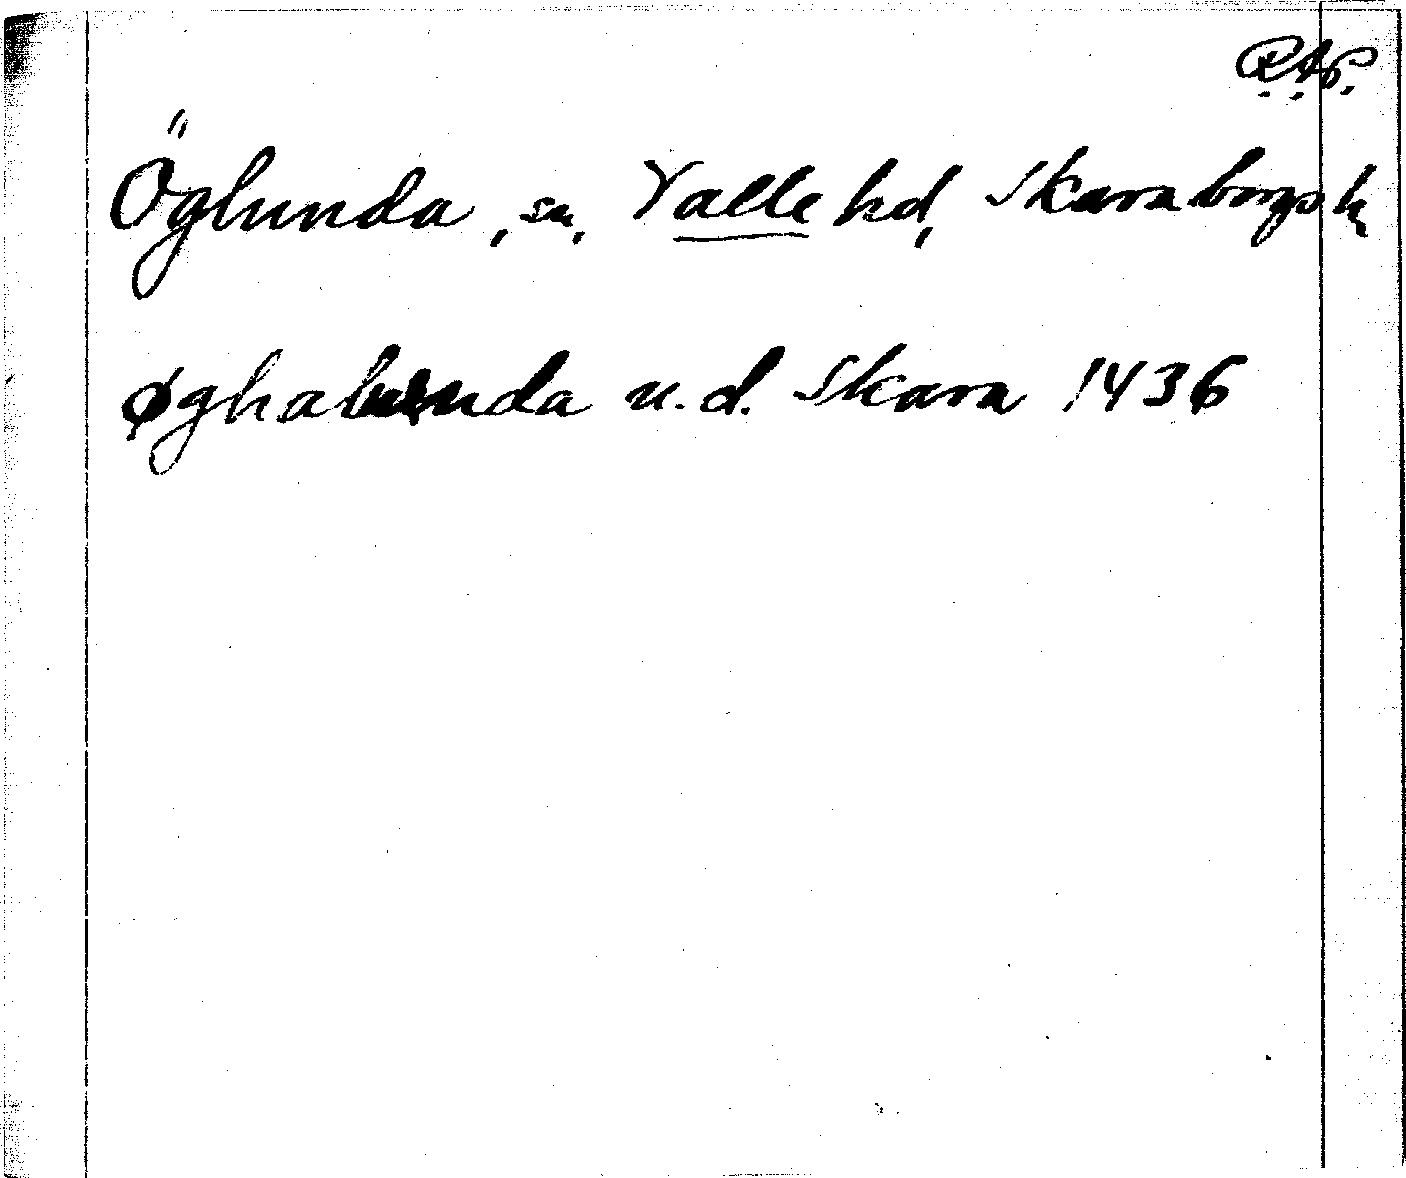 R.A.P.
Öglunda, sn, Valle hd, Skaraborgs l.
øghalunda u.d. Skara 1436